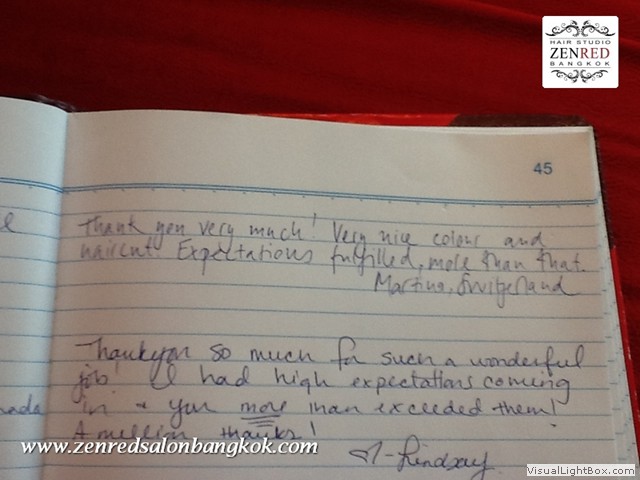 HAIR STUDIO
ZENRED
BANGKOK
45
Thank you very much! Very nice colour and
haircut! Expectations fulfilled, more than that.
Martina, Switzerland
Thankyou so much for such a wonderful
job! I had high expectations coming
nada
in & you more than exceeded them!
A million thanks!
- Lindsay
www.zenredsalonbangkok.com
VisualLightBox.com